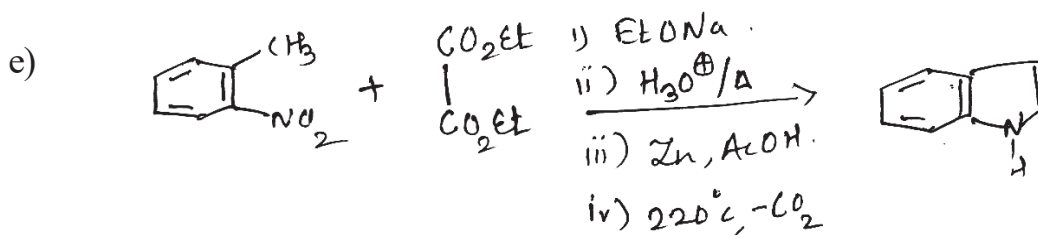 e)
CH3
NO2
+
CO2Et
CO2Et
i) EtONa.
ii) H3O⊕/Δ
iii) Zn, AcOH.
iv) 220°c, -CO2
N
H